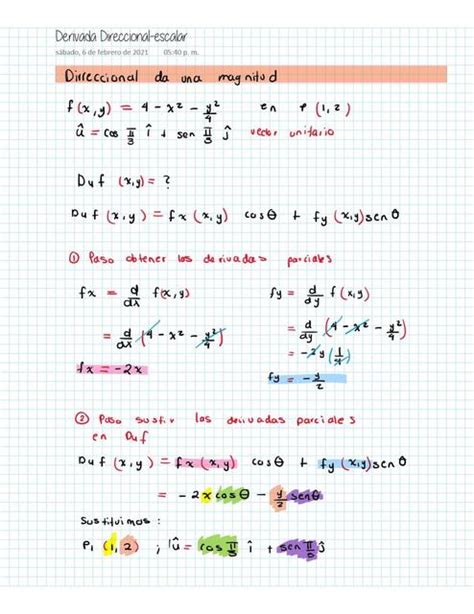 Derivada Direccional-escalar
sábado, 6 de febrero de 2021 05:40 p. m.
Dirreccional da una magnitud
f(x,y) = 4 - x² - y²/4 en P(1,2)
û = cos π/3 î + sen π/3 ĵ vector unitario
Duf (x,y) = ?
Duf (x,y) = fx (x,y) cosθ + fy (x,y) senθ
① Paso obtener las derivadas parciales
fx = d/dx f(x,y) fy = d/dy f(x,y)
= d/dx (4 - x² - y²/4) = d/dy (4 - x² - y²/4)
= -2y (1/4)
fx = -2x fy = -y/2
② Paso sustiv las derivadas parciales
en Duf
Duf (x,y) = fx (x,y) cosθ + fy (x,y) senθ
= -2x cosθ - y/2 senθ
Sustituimos :
P₁ (1,2) ; û = cos π/3 î + sen π/3 ĵ